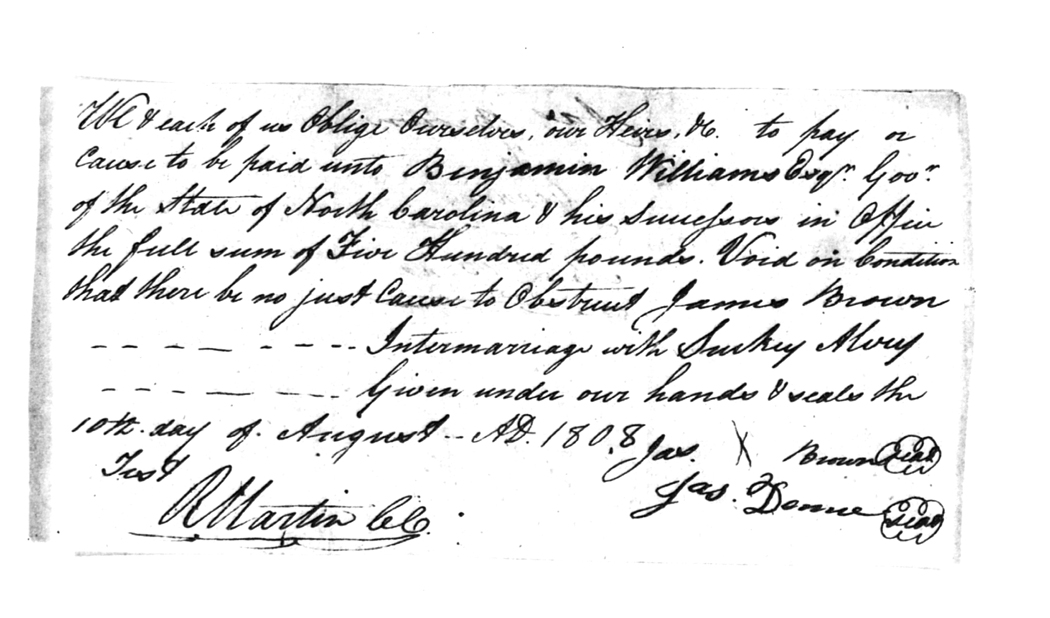 We & each of us Oblige Ourselves, our Heirs, &c. to pay or
Cause to be paid unto Benjamin Williams Esqr. Govr.
of the State of North Carolina & his Successors in Office
the full sum of Five Hundred pounds. Void on Condition
that there be no just Cause to Obstruct James Brown
Intermarriage with Suckey Alvey
Given under our hands & seals the
10th. day of August -- AD. 1808
Jas. X Brown seal
Test
Jas. seal
R Martin CC.